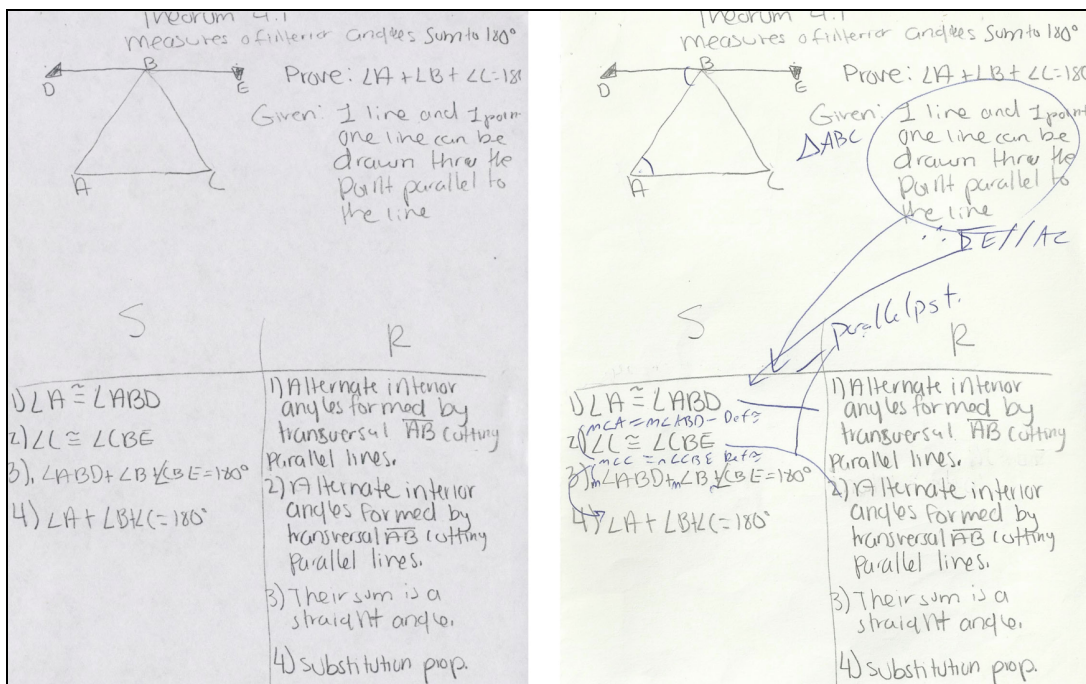 Theorum 4.1
measures of interior angles sum to 180°
B
D
E
A
C
Prove: ∠A + ∠B + ∠C = 180
Given: 1 line and 1 point
one line can be
drawn thru the
point parallel to
the line
S
R
1) ∠A ≅ ∠ABD
2) ∠C ≅ ∠CBE
3) ∠ABD + ∠B + ∠CBE = 180°
4) ∠A + ∠B + ∠C = 180°
1) Alternate interior
angles formed by
transversal AB cutting
parallel lines.
2) Alternate interior
angles formed by
transversal AB cutting
parallel lines.
3) Their sum is a
straight angle.
4) substitution prop.
Theorum 4.1
measures of interior angles sum to 180°
B
D
E
A
C
Prove: ∠A + ∠B + ∠C = 180
Given: 1 line and 1 point
△ABC
one line can be
drawn thru the
point parallel to
the line
∴ DE // AC
Parallel pst.
S
R
1) ∠A ≅ ∠ABD
m∠A = m∠ABD - Def ≅
2) ∠C ≅ ∠CBE
m∠C = m∠CBE Def ≅
3) m∠ABD + m∠B + ∠CBE = 180°
4) ∠A + ∠B + ∠C = 180°
1) Alternate interior
angles formed by
transversal AB cutting
parallel lines.
2) Alternate interior
angles formed by
transversal AB cutting
parallel lines.
3) Their sum is a
straight angle.
4) substitution prop.